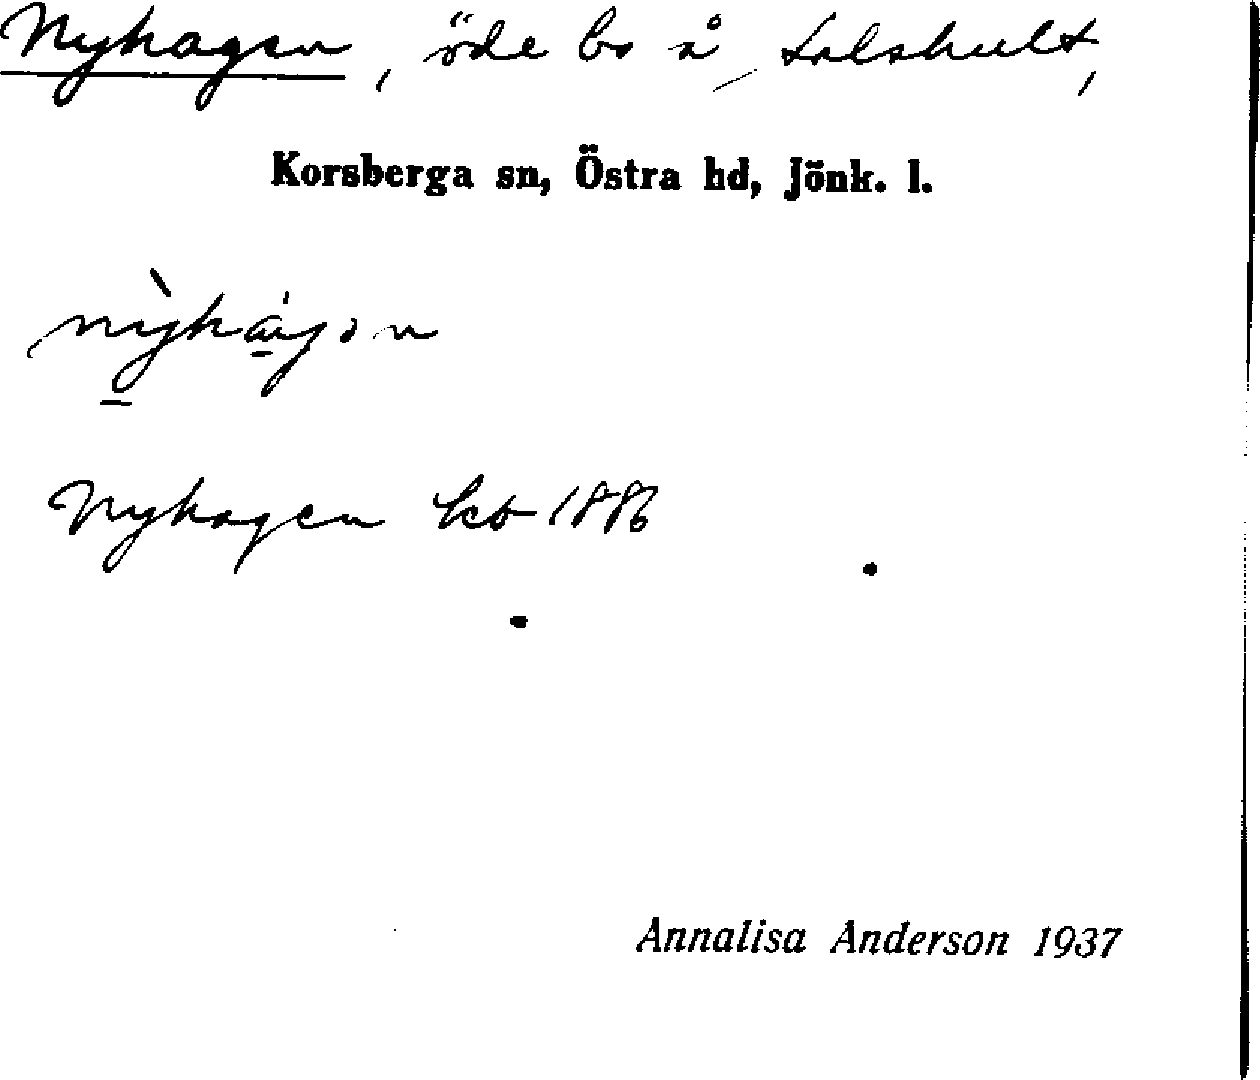 Nyhagen, öde bs å Tolshult,
Korsberga sn, Östra hd, Jönk. l.
Nyhagen kb 1886
Annalisa Anderson 1937